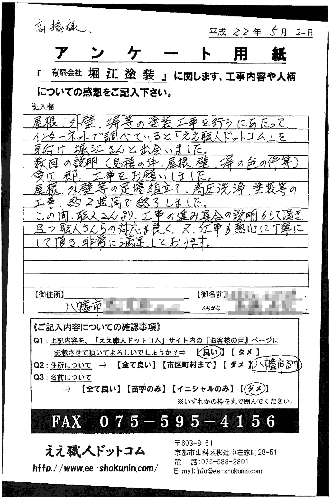 高橋様
平成 22年 5月 2日
アンケート用紙
『 有限会社 堀江塗装 』に関します、工事内容や人柄
についての感想をご記入下さい。
記入欄
屋根、外壁、塀等の塗装工事を行うにあたって
インターネットで調べていると「ええ職人ドットコム」を
見付け 堀江さんと出会いました。
数回の説明(見積の件、屋根、壁、塀の色の件等)
受け 即、工事をお願いしました。
屋根、外壁等の足場組立て、高圧洗浄、塗装等の
工事、約2週間で終了しました。
この間、職人さんより、工事の進み具合の説明もして頂き
且つ職人さんらの対応も良く、又、仕事も熱心に丁寧に
して頂き、非常に満足しております。
【御住所】
八幡市
【御名前】
《ご記入内容についての確認事項》
Q1:上記内容を、「ええ職人ドットコム」サイト内の「お客様の声」ページに
記載させて頂いてよろしいでしょうか?⇒ 【良い】 【ダメ】
Q2:ご住所について → 【全て良い】【市区町村まで】【ダメ】 八幡市まで
Q3:名前について
→ 【全て良い】【苗字のみ】【イニシャルのみ】【ダメ】
※いずれかの枠を丸で囲んでください。
FAX 075-595-4156
ええ職人ドットコム
http://www.ee-shokunin.com/
京都市山科区
E-mail:info@ee-shokunin.com